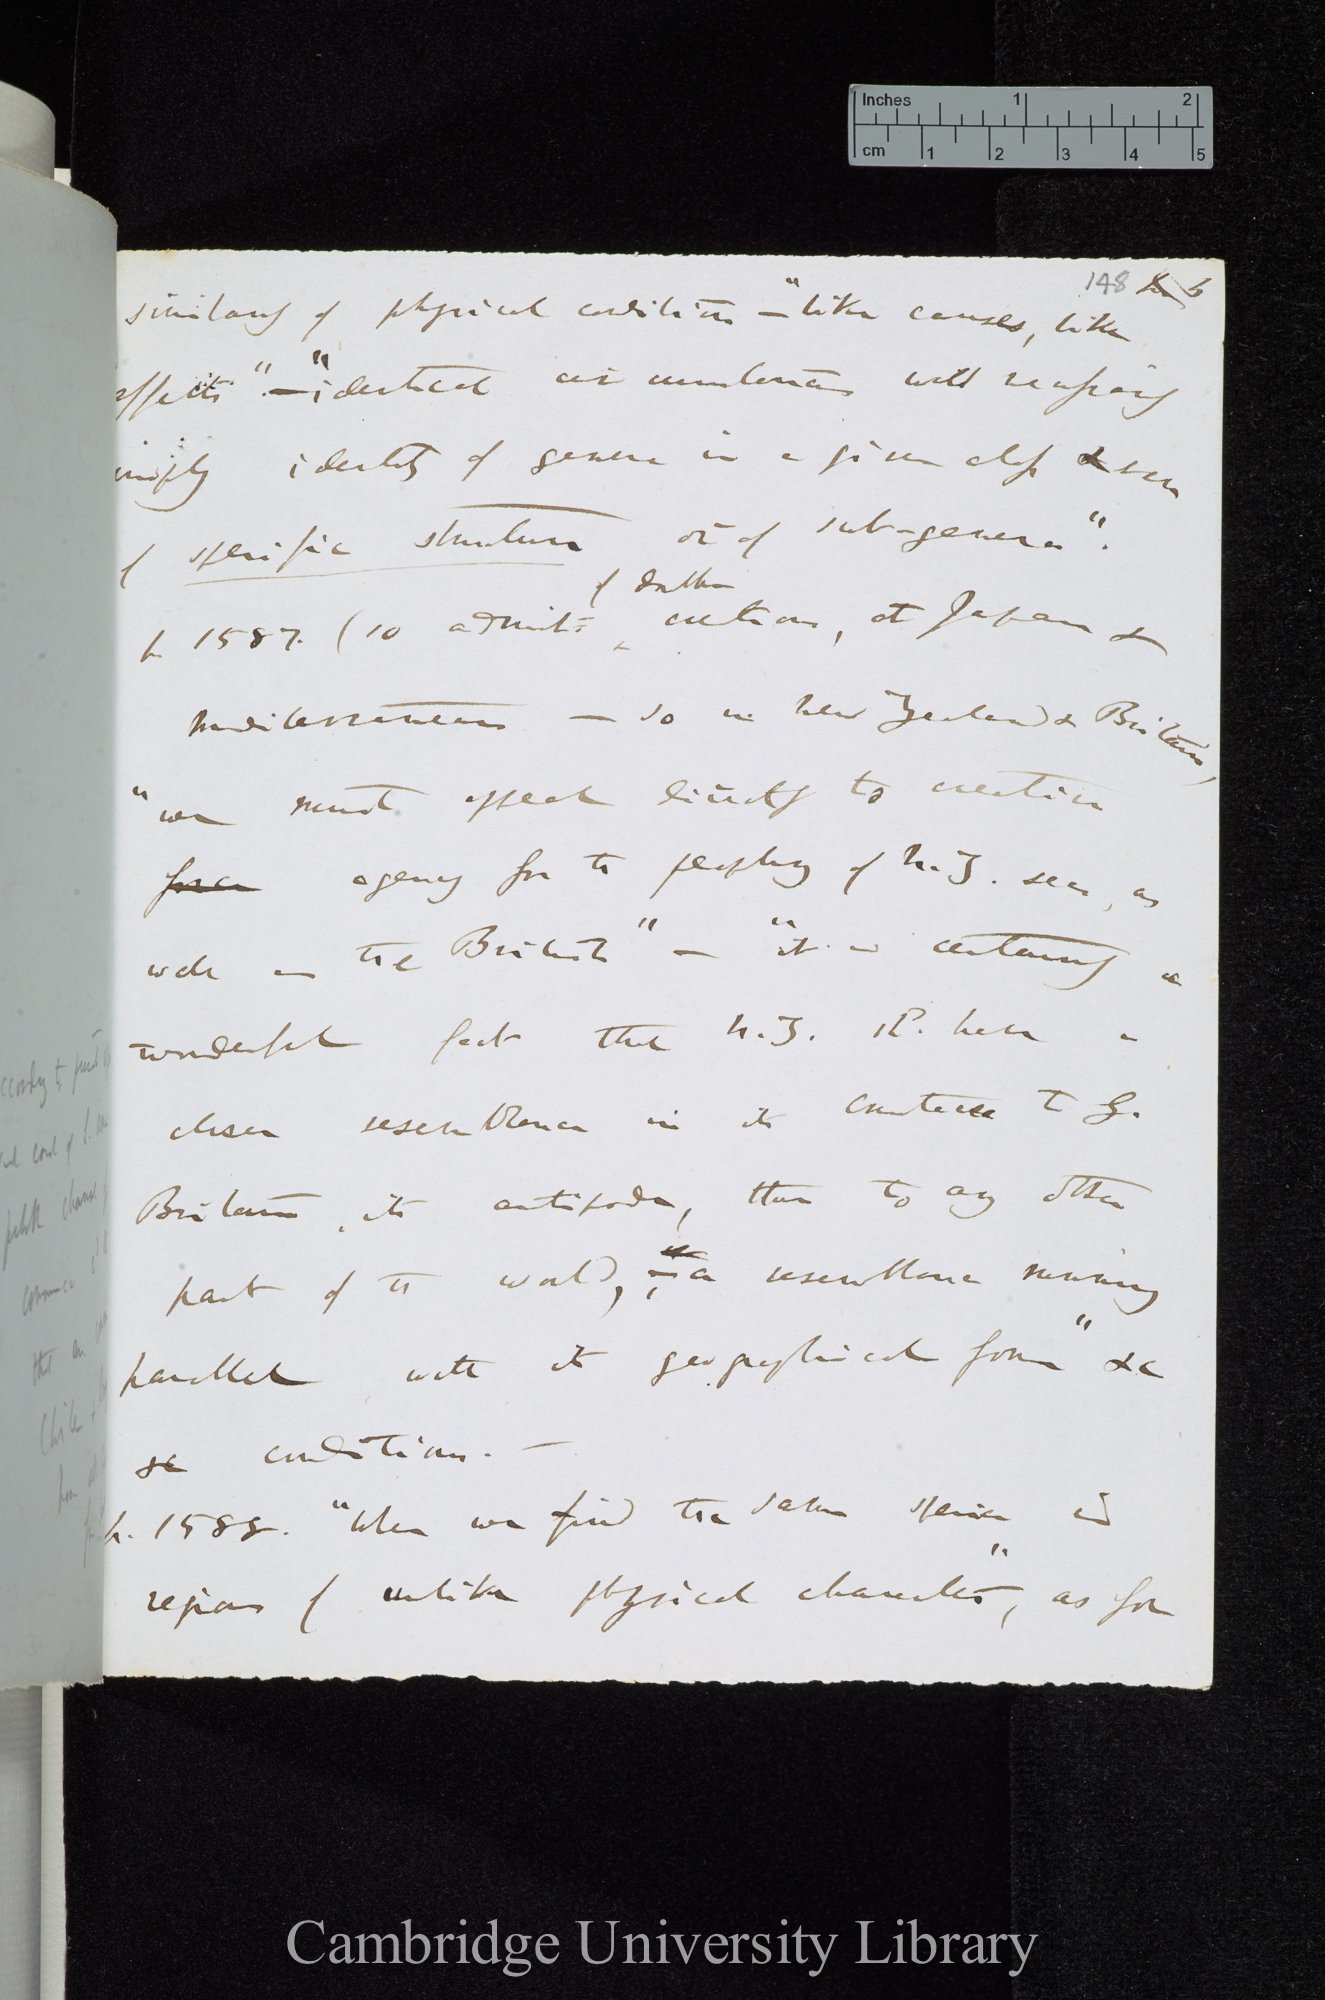 Inches 1 2
cm 1 2 3 4 5
148
similarity of physical condition — "like causes, like
effects" — "identical circumstances will req
imply identity of genera in a given class & even
of specific structure or of sub-genera".
of double
p. 1587. (so admits creations, at Japan &
Mediterranean — so in New Zealand & Britain,
"we must appeal directly to creative
force agency for the peopling of N.Z. seas, as
well as the British" — "it is certainly a
wonderful fact that N.Z. sh. have a
closer resemblance in its Crustacea to G.
Britain, its antipode, than to any other
part of the world, — a resemblance running
parallel with its geographical form" &c
&c conditions. —
p. 1588. "When we find the same species in
regions of unlike physical character", as for
Cambridge University Library